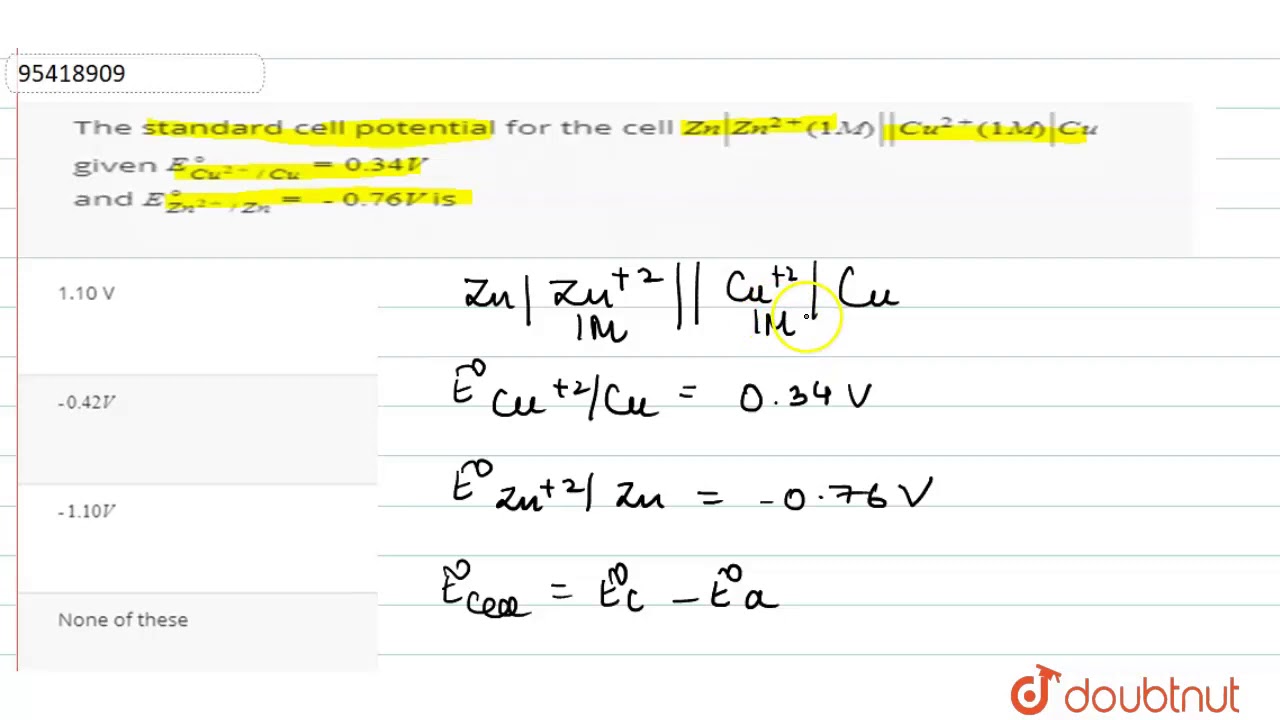 95418909
The standard cell potential for the cell Zn|Zn²⁺(1M)||Cu²⁺(1M)|Cu
given E°Cu²⁺/Cu = 0.34V
and E°Zn²⁺/Zn = - 0.76V is
1.10 V
-0.42V
-1.10V
None of these
Zn | Zn⁺² || Cu⁺² | Cu
1M 1M
E° Cu⁺²/Cu = 0.34 V
E° Zn⁺²/Zn = -0.76 V
E°cell = E°c - E°a
doubtnut